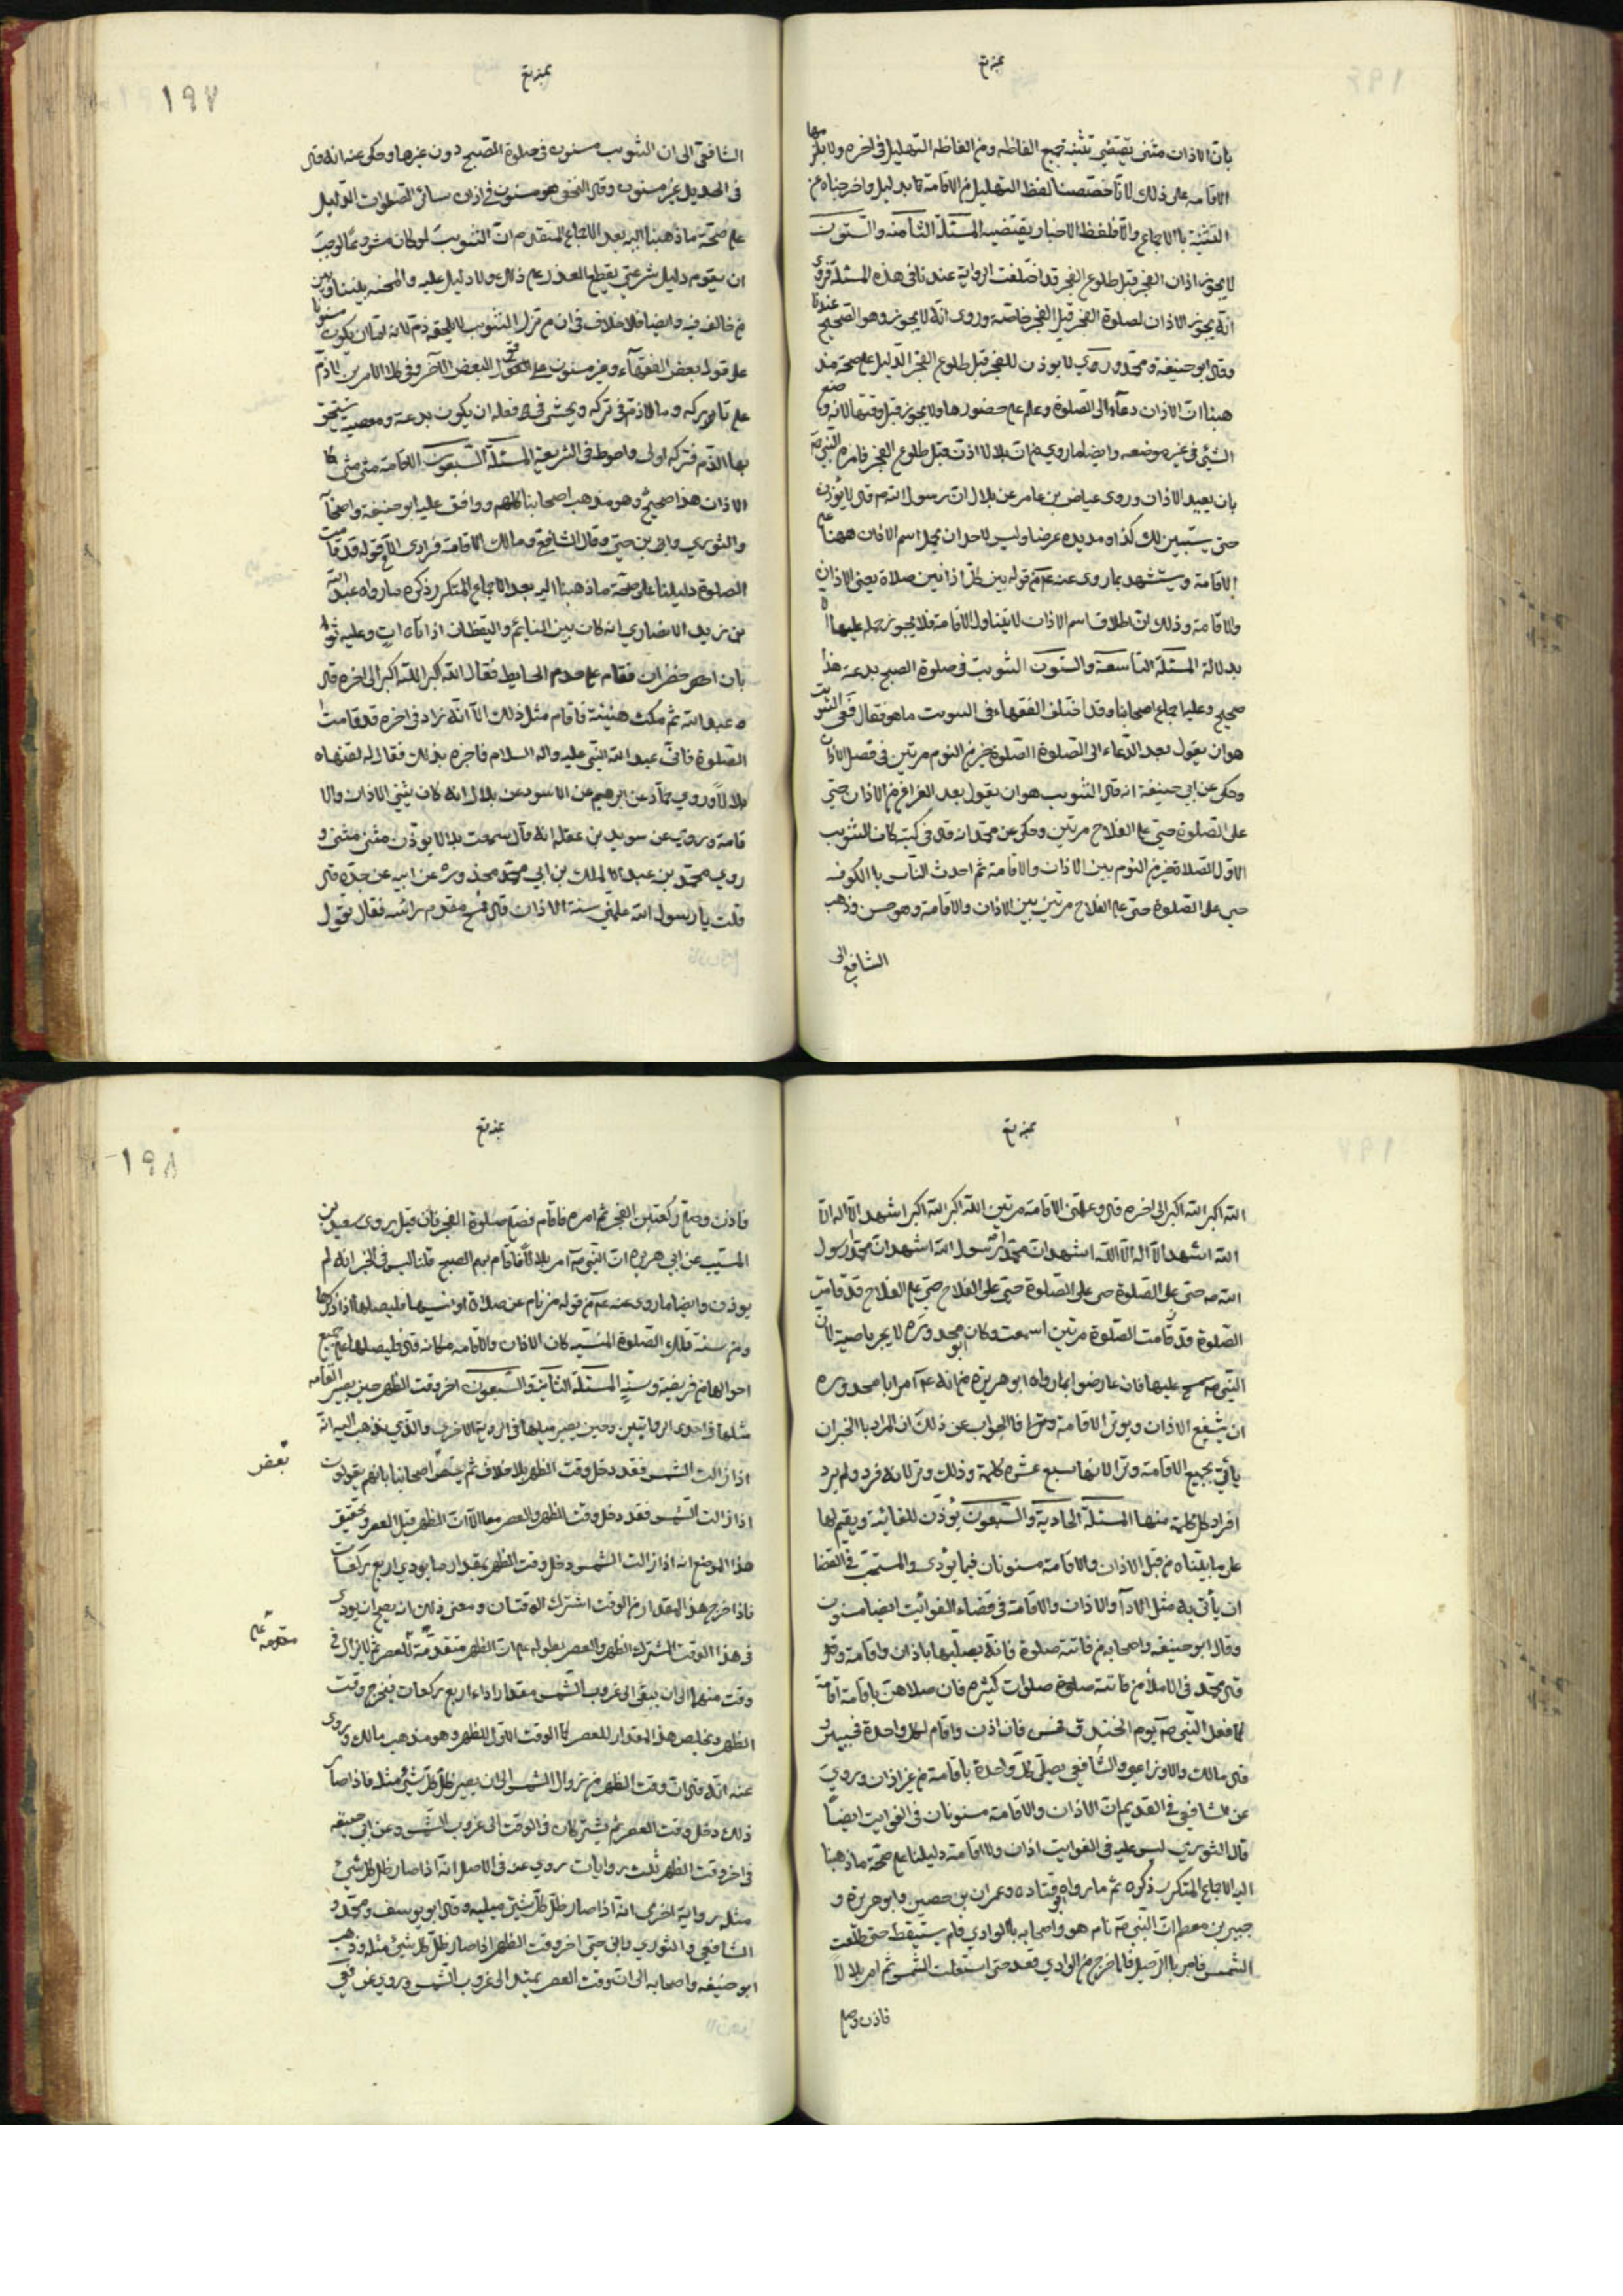 بان الاذان مثنى يقتضي تثنية جميع الفاظه ومن الفاظه التهليل في اخره ولا يلزمها
الاقامه على ذلك لانا خصصنا لفظ التهليل من الاقامة بدليل واخرجناه عن
التثنية بالاجماع والا فلفظ الاخبار يقتضيه المسئلة الثامنه والستون
لا يجوز اذان الفجر قبل طلوع الفجر قد اختلفت الرواية عندنا في هذه المسئلة فروى
انه يجوز الاذان لصلوة الفجر قبل الفجر خاصة وروى انه لا يجوز وهو الصحيح عندنا
وقال ابو حنيفة ومحمد والثوري لا يوذن للفجر قبل طلوع الفجر الدليل على صحة مذ
هبنا ان الاذان دعاء الى الصلوة وعلم على حضورها ولا يجوز قبل وقتها لانه وضع
الشئ في غير موضعه وايضا ما روي من ان بلالا اذن قبل طلوع الفجر فامره النبي ص
بان يعيد الاذان وروى عياض بن عامر عن بلال ان رسول الله ص قال لا تؤذن
حتى يستبين لك كذا ومد يده عرضا وليس لاحد ان يحمل اسم الاذان ههنا على
الاقامة ويستشهد بما روى عنه ع م من قوله بين كل اذانين صلاة يعني الاذان
والاقامة وذلك ان اطلاق اسم الاذان لا يتناول الاقامة فلا يجوز حمله عليها الا
بدلالة المسئلة التاسعة والستون التثويب في صلوة الصبح بدعة هذا
صحيح وعليه اجماع اصحابنا وقد اختلف الفقهاء في التثويب ما هو فقال قفى التثويب
هو ان يقول بعد الدعاء الى الصلوة الصلوة خير من النوم مرتين في فصل الاذان
وحكى عن ابي حنيفة انه قال التثويب هو ان يقول بعد الفراغ من الاذان حي
على الصلوة حي على الفلاح مرتين وحكى عن محمد انه قال في كتبه كان التثويب
الاول الصلاة خير من النوم بين الاذان والاقامة ثم احدث الناس بالكوفه
حي على الصلوة حي على الفلاح مرتين بين الاذان والاقامة وهو حسن وذهب
الشافعي الى
١٩٧
الشافعي الى ان التثويب مسنون في صلوة الصبح دون غيرها وحكى عنه انه قال
في الجديد غير مسنون وقال النخعي هو مسنون في اذان سائر الصلوات الدليل
على صحة ما ذهبنا اليه بعد الاجماع المتقدم ان التثويب لو كان مشروعا لوجب
ان يقوم دليل شرعي يقطع العذر على ذلك ولا دليل عليه والمحنه بيننا وبين
من خالف فيه وايضا فلا خلاف في ان من ترك التثويب لا يلحقه ذم لانه اما ان يكون مسنونا
على قول بعض الفقهاء وغير مسنون على قول البعض الآخر وفي كلا الامرين لا ذم
على تاركه وما لا ذم في تركه ويخشى في فعله ان يكون بدعة ومعصية يستحق
بها الذم فتركه اولى واحوط في الشريعة المسئلة السبعون الاقامة مثنى مثنى كا
الاذان هذا صحيح وهو مذهب اصحابنا كلهم ووافق عليه ابو حنيفة واصحابه
والثوري وابن حي وقال الشافعي ومالك الاقامة فرادى الا قوله قد قامت
الصلوة دليلنا على صحة ما ذهبنا اليه بعد الاجماع المتكرر ذكره ما رواه عبد الله
بن زيد الانصاري انه كان بين النايم واليقظان اذا اتاه ات وعليه ثوبا
بان اخضران فقام على جدم الحايط فقال الله اكبر الله اكبر الى اخره قال
عبد الله ثم مكث هنيئة فاقام مثل ذلك الا انه زاد في اخره قد قامت
الصلوة فاتى عبد الله النبي عليه واله السلام فاخبره بذلك فقال له لقنها
بلالا وروي حماد عن ابرهيم عن الاسود عن بلال انه كان يثني الاذان والا
قامة وروي عن سويد بن غفله انه قال سمعت بلالا يوذن مثنى مثنى و
روي محمد بن عبد الملك بن ابي محذوره عن ابيه عن جده قال
قلت يا رسول الله علمني سنة الاذان قال فمسح مقدم راسه فقال تقول
الله اكبر الله اكبر الى اخره قال وعلمني الاقامة مرتين الله اكبر الله اكبر اشهد ان لا اله الا
الله اشهد ان لا اله الا الله اشهد ان محمدا رسول الله اشهد ان محمدا رسول
الله ص حي على الصلوة حي على الصلوة حي على الفلاح حي على الفلاح قد قامت
الصلوة قد قامت الصلوة مرتين اسمعت وكان ابو محذوره لا يجز ناصيته لان
النبي ص مسح عليها فان عارضوا بما رواه ابو هريرة من انه ع م امر ابا محذوره
ان يشفع الاذان ويوتر الاقامة فالجواب عن ذلك ان المراد بالخبر ان
يأتي بجميع الاقامة وترا لانها سبع عشرة كلمة وذلك وتر لانه فرد ولم يرد
افراد كل كلمة منها المسئلة الحادية والسبعون يؤذن للفائتة ويقيم لها
على ما بيناه من قبل الاذان والاقامة مسنونان فيما يؤدي والمستحب في القضا
ان يأتي به مثل الاداء والاذان والاقامة في قضاء الفوائت ايضا مسنون
وقال ابو حنيفه واصحابه من فاتته صلوة فانه يصليها باذان واقامة وقد
قال محمد في الاملاء من فاتته صلوات كثيره فان صلاهن باقامة اقامة
كما فعل النبي ص يوم الخندق فحسن فان اذن واقام لكل واحدة فحسن و
قال مالك والاوزاعي والشافعي يصلي كل واحدة باقامة من غير اذان وروي
عن الشافعي في القديم ان الاذان والاقامة مسنونان في الفوايت ايضا
قال الثوري ليس عليه في الفوايت اذان ولا اقامة دليلنا على صحة ما ذهبنا
اليه الاجماع المتكرر ذكره ثم ما رواه ابو قتاده وعمران بن حصين وابو هريرة و
جبير بن مطعم ان النبي ص نام هو واصحابه بالوادي فلم يستيقظ حتى طلعت
الشمس فامر بالرحيل فلما خرج من الوادي قعد حتى استعلت الشمس ثم امر بلالا
فاذن وصلى
١٩٨
فاذن وصلى ركعتين الفجر ثم امره فاقام فصلى صلوة الفجر فان قيل روى سعيد بن
المسيب عن ابي هريره ان النبي ص امر بلالا فاقام بهم الصبح قلنا ليس في الخبر انه لم
يوذن وايضا ما روى عنه ع م من قوله من نام عن صلاة او نسيها فليصلها اذا ذكرها
ومن سنة قلك الصلوة المنسيه كان الاذان والاقامه فكانه قال فليصلها على جميع
احوالها من فريضة وسنة المسئلة الثانية والسبعون اخر وقت الظهر حين يصير القامه
مثلها في احدى الروايتين وحين يصير مثليها في الرواية الاخرى والذي نذهب اليه انه
اذا زالت الشمس فقد دخل وقت الظهر بلا خلاف ثم يختص اصحابنا بانهم يقولون
بعض
اذا زالت الشمس فقد دخل وقت الظهر والعصر معا الا ان الظهر قبل العصر وتحقيق
هذا الموضع انه اذا زالت الشمس دخل وقت الظهر بمقدار ما يودي اربع ركعات
فاذا خرج هذا المقدار من الوقت اشترك الوقتان ومعنى ذلك انه يصح ان يودى
في هذا الوقت المشترك الظهر والعصر بطوله على ان الظهر متقدمة للعصر ثم لا يزال في
متقدمه على
وقت منهما الى ان يبقى الى غروب الشمس مقدار اداء اربع ركعات فيخرج وقت
الظهر ويخلص هذا المقدار للعصر كما الوقت الاول للظهر وهو مذهب مالك وروى
عنه انه قال ان وقت الظهر من زوال الشمس الى ان يصير ظل كل شئ مثله فاذا صار
ذلك دخل وقت العصر ثم يشتركان في الوقت الى غروب الشمس وعن ابي حنيفه
في اخر وقت الظهر ثلث روايات روي عنه في الاصل انه اذا صار ظل كل شئ
مثله رواية اخرى انه اذا صار ظل كل شئ مثليه وقال ابو يوسف ومحمد و
الشافعي والثوري وابن حي اخر وقت الظهر اذا صار ظل كل شئ مثله وذهب
ابو حنيفه واصحابه الى ان وقت العصر يمتد الى غروب الشمس وروي عن قفى